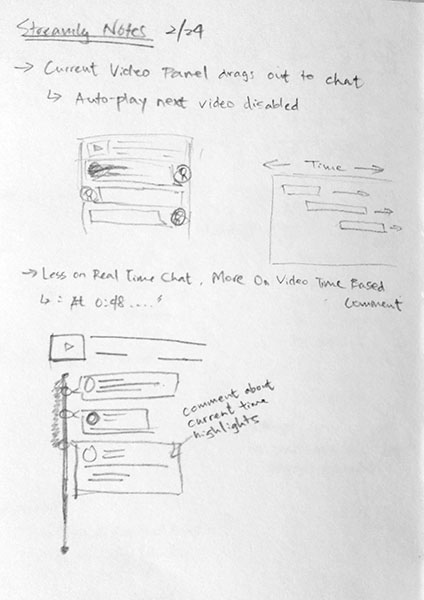 Streamly Notes 2/24
→ Current Video Panel drags out to chat
↳ Auto-play next video disabled
← Time →
→ Less on Real Time Chat, More On Video Time Based
Comment
↳ " At 0:48 ....."
Comment about
current time
highlights